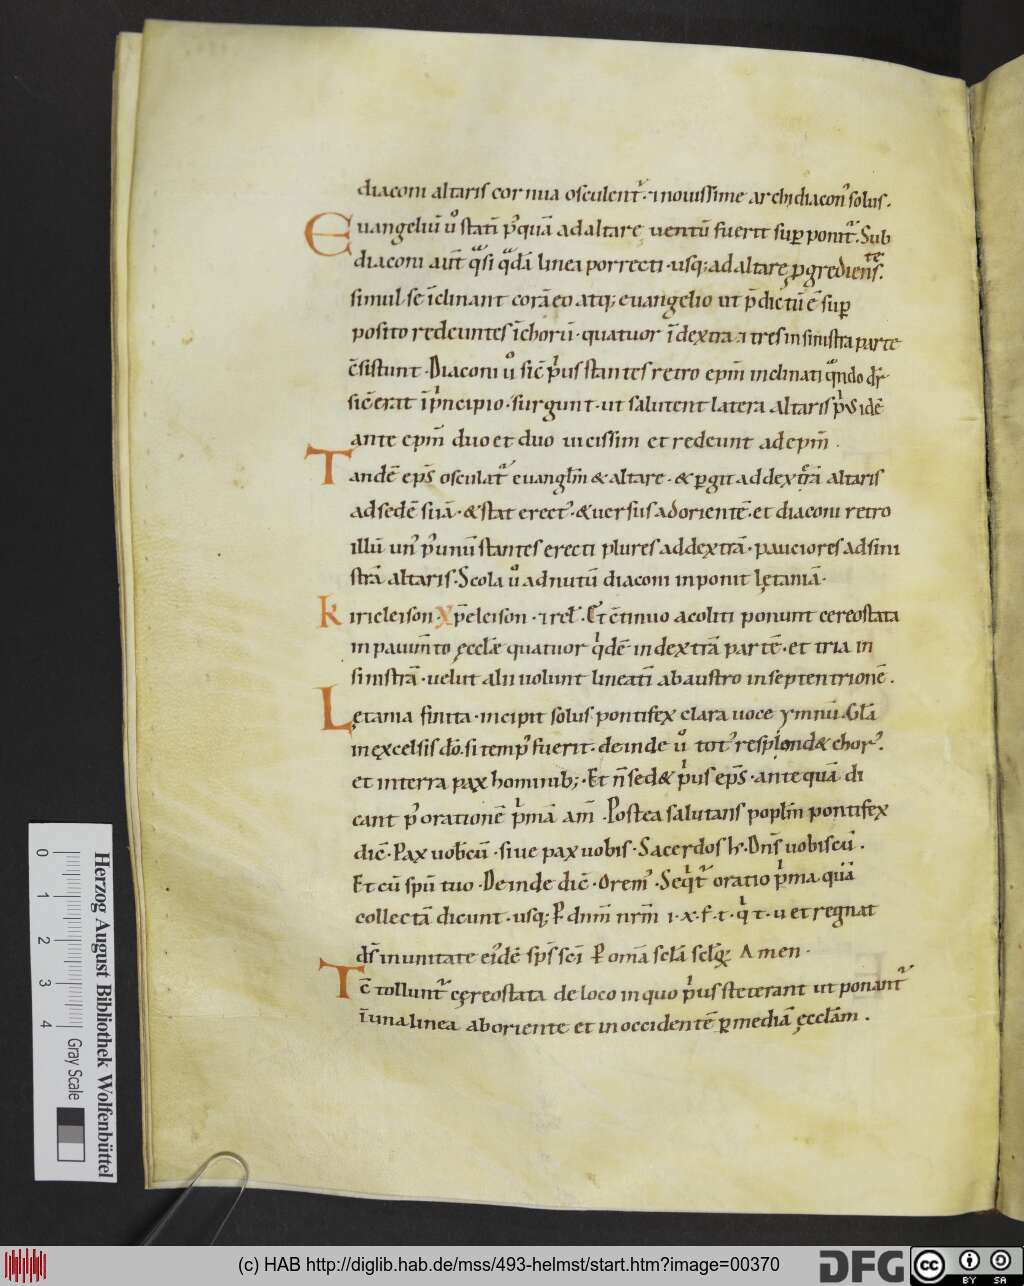 diaconi altaris cornua osculent᷑·⁊ nouissime archidiacon᷒ solus.
Euangeliū u̽o statī p᷒quā ad altare uentū fuerit suꝑ ponit᷑. Sub
diaconi aut̄ qͣsi qͣdā linea porrecti·usq; ad altarę ꝓgredientes.
simul se īclinant corā eo atq; euangelio ut p̄dictū ē suꝑ
posito redeuntes ī chorū·quatuor ī dextra ⁊ tres in sinistra parte
c̄sistunt·Diaconi uͦ sic̄ pͥus stantes retro ep̄m inclinati qͣndo dr̄
sic̄ erat ī pͥncipio·surgunt·ut salutent latera altaris pͥ᷒ idē
ante ep̄m duo et duo uicissim et redeunt ad ep̄m.
Tandē ep̄s osculat᷑ euangl̄m & altare·& ꝑgit ad dextrā altaris
ad sedē suā·& stat erect᷒·& uersus ad orientē·et diaconi retro
illū un᷒ p᷒ unū stantes erecti plures ad dextrā·pauciores ad sini
strā altaris·Scola uͦ ad nutū diaconi inponit lętaniā·
kirieleison·xp̄eleison·⁊ rel̄·Et c̄tinuo acoliti ponunt cereostata
in pauim̄to ęccl̄æ quatuor qͥdē in dextrā partē·et tria in
sinistrā·uelut alii uolunt lineatī ab austro in septentrionē.
Lętania finita·incipit solus pontifex clara uoce ymnū·Gl̄a
in excelsis do̅·si temp᷒ fuerit·deinde uͦ tot᷒ respond& chor᷒.
et in terra pax hominib;·Et n̄ sed& pͥus ep̄s·ante quā di
cant p᷒ orationē pͥmā am̄·Postea salutans popl̄m pontifex
dic̄·Pax uob̄cū·siue pax uobis·Sacerdos h̄·Dn̄s uobiscū.
Et cū spū tuo·Deinde dic̄·Orem᷒·Seqͥt᷑ oratio pͥma·quā
collectā dicunt·usq; P dnm̄ nr̄m ı·x·f·t·qͥ t·u et regnat
ds̄ in unitate ei᷒dē sp̄s sc̄i P om̄a sc̄la sc̄lꝝ Amen·
Tc̄ tollunt᷑ cęreostata de loco in quo pͥus steterant ut ponant᷑
ī una linea ab oriente et in occidentē ꝑ mediā ęccl̄am.
Herzog August Bibliothek Wolfenbüttel
0 1 2 3 4
Gray Scale
(c) HAB http://diglib.hab.de/mss/493-helmst/start.htm?image=00370
DFG
cc
BY SA